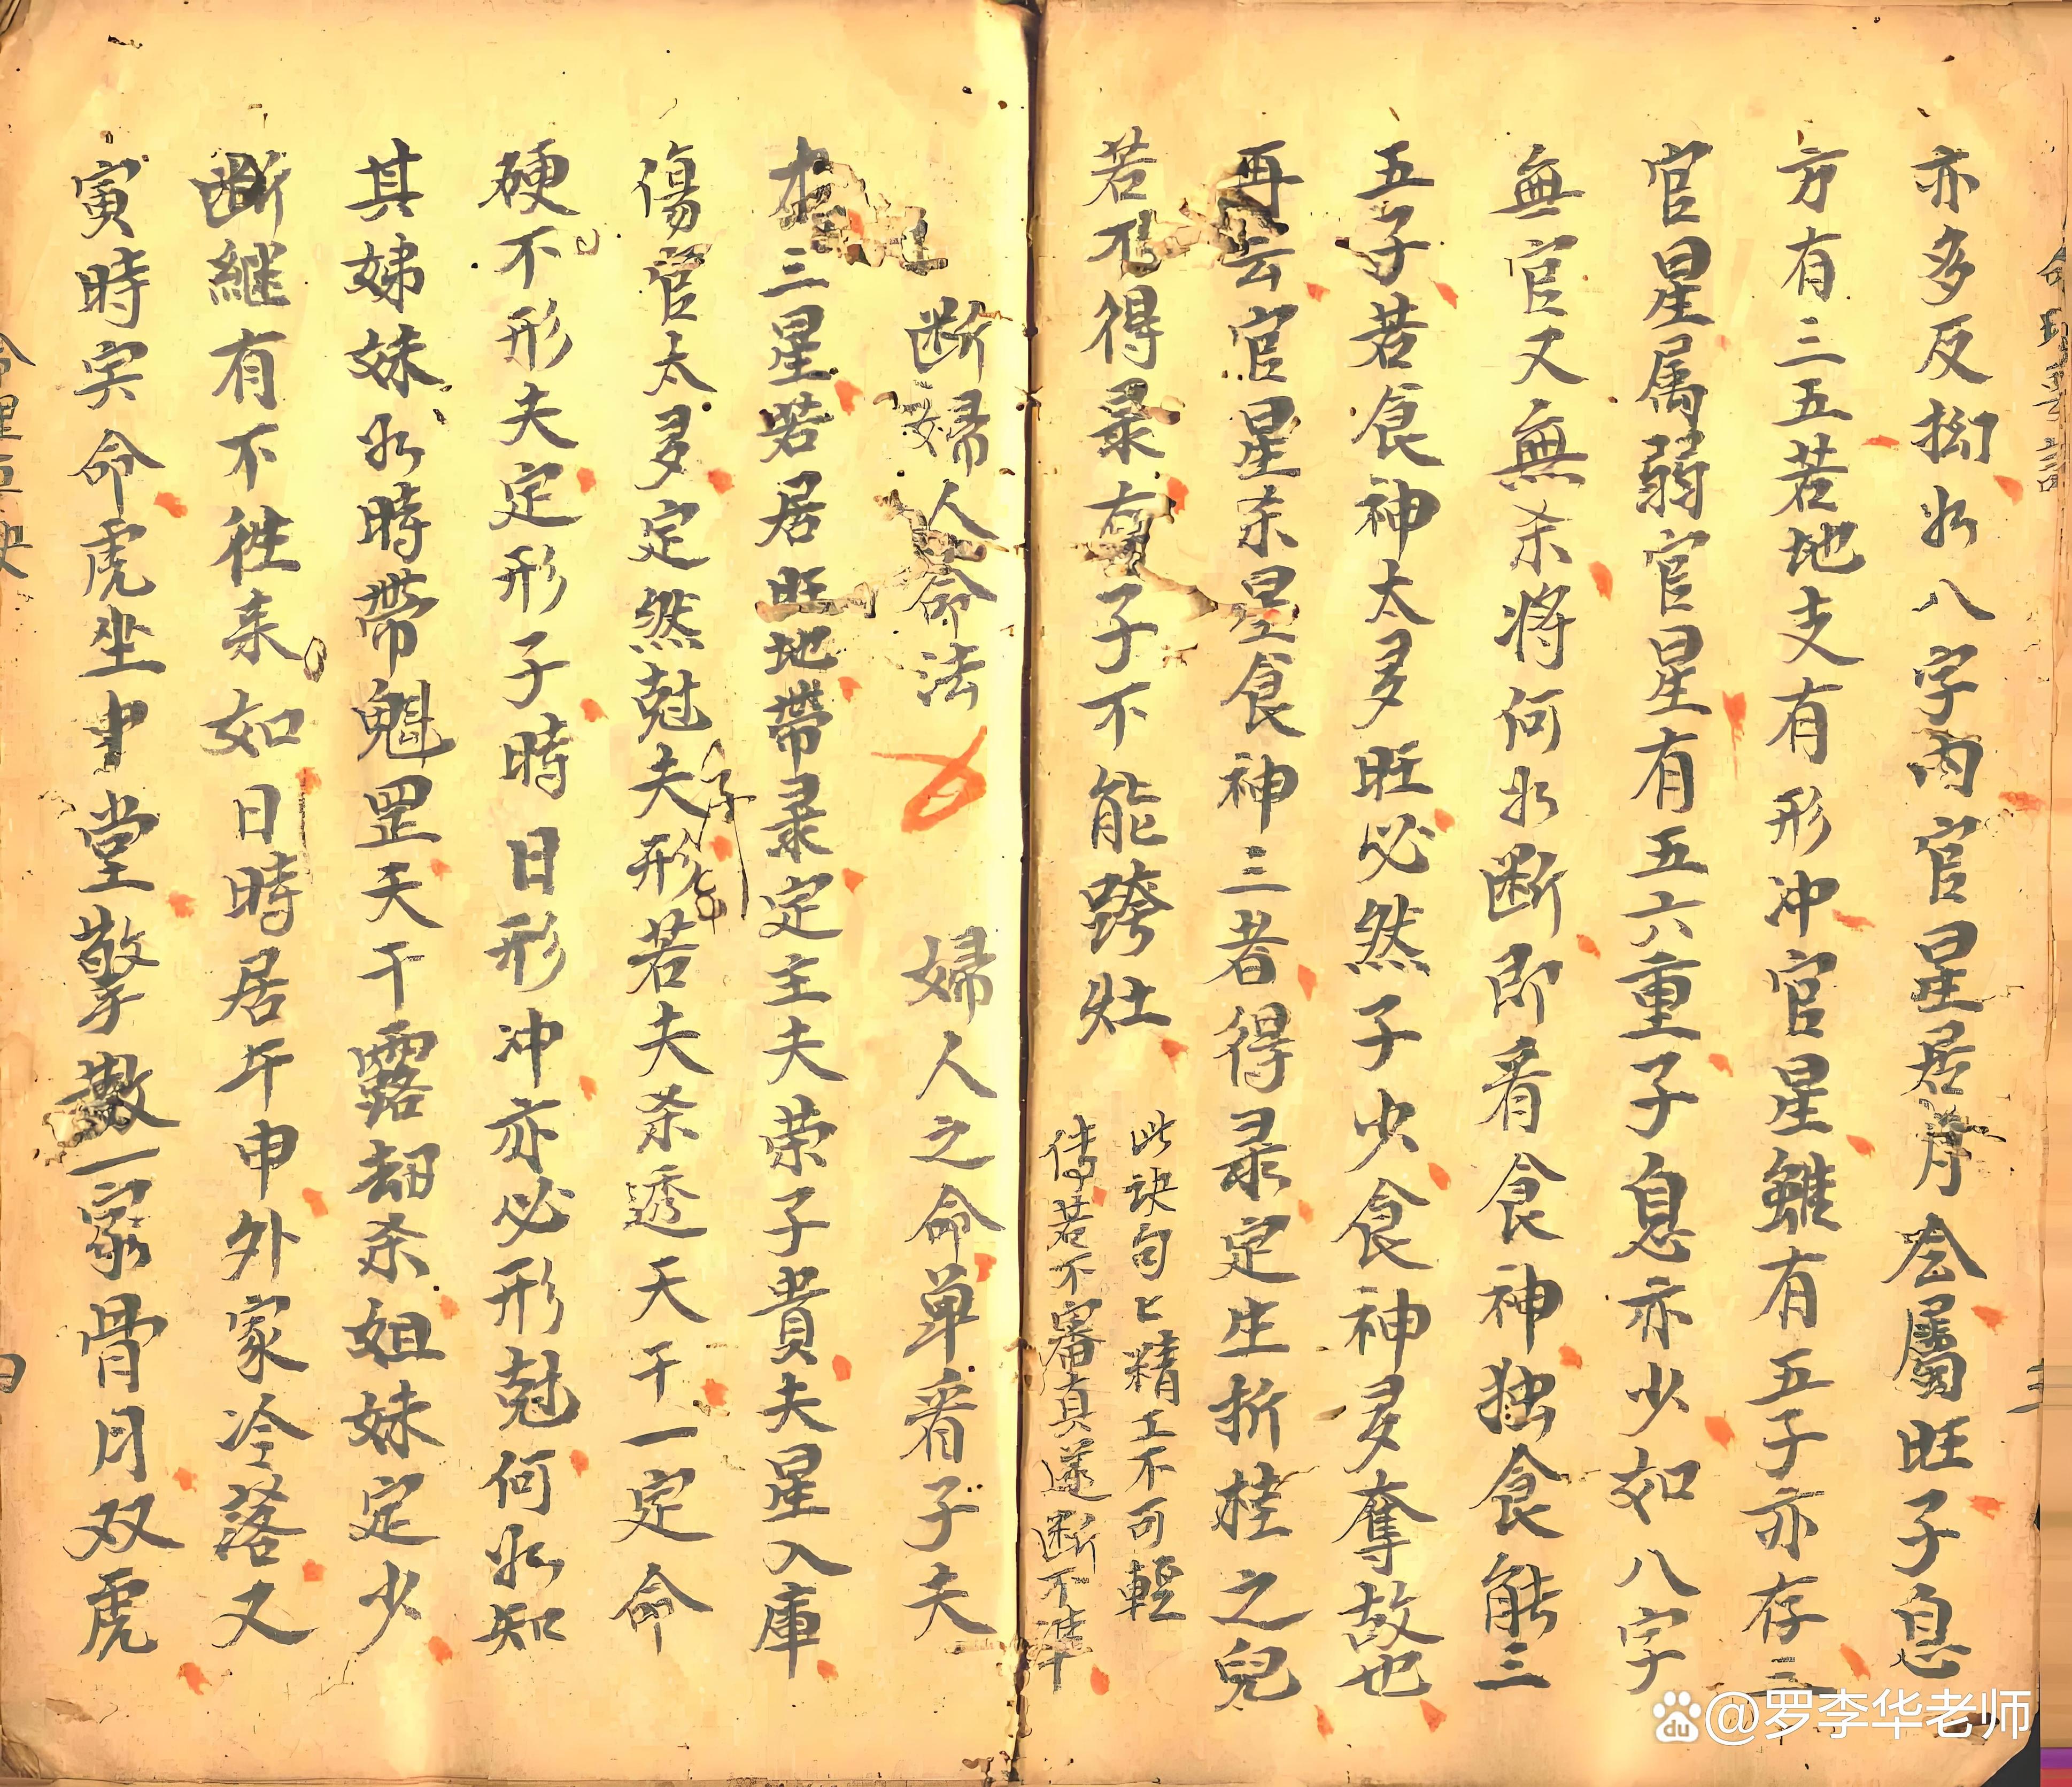 亦多反拗以八字内官星居月令屬旺子息
方有三五若地支有形冲官星雖有五子亦存三
官星属弱官星有五六重子息亦少如八字
無官又無杀将何以断即看食神独食能三
五子若食神太多旺必然子少食神多奪故也
再云官星杀星食神三者得彔定生折桂之兒
若不得彔有子不能跨灶
此訣句匕精工不可輕
傳若不審真遂断不準
断婦人命法
婦人之命单看子夫
三星若居旺地帶彔定主夫荣子貴夫星入庫
傷官太多定然尅夫形子若夫杀透天干一定命
硬不形夫定形子時日形冲亦必形尅何以知
其娣妹以時帶魁罡天干露刼杀姐妹定少
断継有不徃来如日時居午申外家冷落又
寅時寅命虎坐中堂敬孥數一家骨月双虎
@罗李华老师